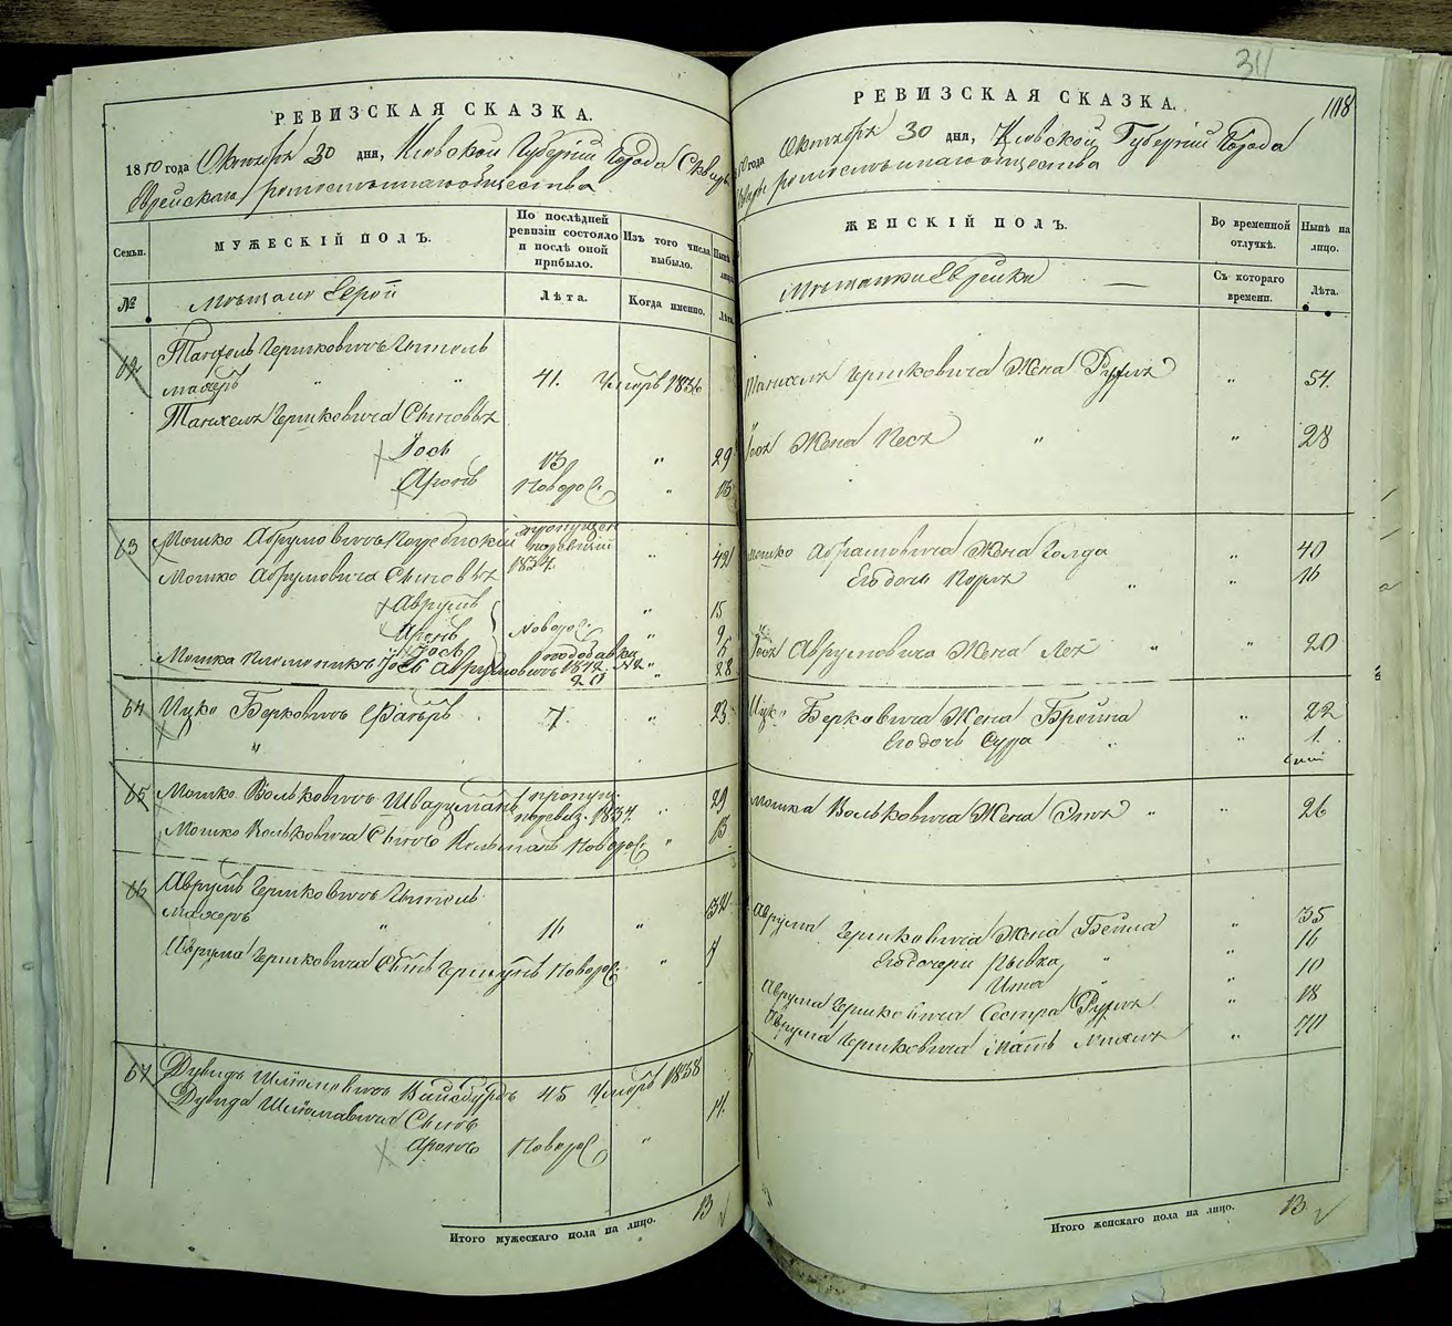 РЕВИЗСКАЯ СКАЗКА.
1850 года Октября 30 дня, Киевской Губернии Города Сквиры
Еврейскаго ремесленнаго общества
Семьи.
МУЖЕСКІЙ ПОЛЪ.
По послѣдней ревизіи состояло и послѣ оной прибыло.
Изъ того числа выбыло.
Нынѣ на лицо.
№
Мѣщане Евреи
Лѣта.
Когда именно.
Лѣта.
62
Танхель Гершковичъ
махеръ " " 41. Умеръ 1836
Танхеля Гершковича Сыновья
Іось 13 " 29
Аронъ Новорож. " 13
63 Мошко Аврумовичъ пропущен
по ревизіи 1834. " 42
Мошко Аврумовича Сыновья
Аврумъ " 15
Новорож. " 9
Іось 5
Мошка племянникъ Іось Аврумовичъ 28
64 Ицко Берковичъ 7. " 23
"
65 Мошко Вольковичъ Шварцманъ пропущ.
по ревиз. 1834. " 29
Мошко Вольковича Сынъ Кельманъ Новорож. " 13
66 Аврумъ Гершковичъ
махеръ " 16 " 32
Аврума Гершковича Сынъ Гершунъ Новорож. " 7
67 Дувидъ Шліомовичъ Вайсбурдъ 45 Умеръ 1838
Дувида Шліомовича Сынъ
Аронъ Новорож. " 14.
Итого мужескаго пола на лицо. 13
311
118
РЕВИЗСКАЯ СКАЗКА.
1850 года Октября 30 дня, Киевской Губернии Города
Сквиры ремесленнаго общества
ЖЕНСКІЙ ПОЛЪ.
Во временной отлучкѣ.
Нынѣ на лицо.
Мѣщанки Еврейки
Съ котораго времени.
Лѣта.
Танхеля Гершковича Жена Рухля " 54.
Іося Жена Песя " " 28
Мошко Абрамовича Жена Голда " 40
Его дочь Перля " " 16
Іося Аврумовича Жена Лея " " 20
Ицко Берковича Жена Брейна " 22
Его дочь Сура " " 1.
Мошка Вольковича Жена " " 26
Аврума Гершковича Жена Бейла " 35
Его дочери Рывка " " 16
Ита " 10
Аврума Гершковича Сестра Рухля " 18
Аврума Гершковича Мать " 70
Итого женскаго пола на лицо. 13